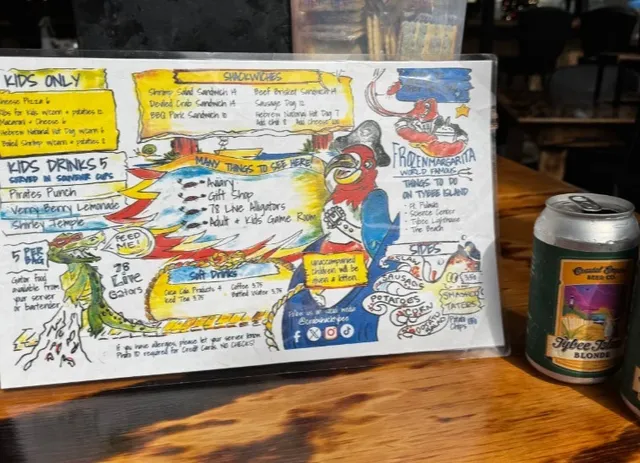 KIDS ONLY
Cheese Pizza 6
Ribs for Kids w/corn + potatoes 12
Macaroni + Cheese 6
Hebrew National Hot Dog w/corn 6
Boiled Shrimp w/corn + potatoes 8
KIDS DRINKS 5
SERVED IN SOUVENIR CUPS
Pirates Punch
Verry Berry Lemonade
Shirley Temple
5 PER BAG
Gator Food
available from
your server
or bartender.
FEED ME!
78
LIVE
Gators
SHACKWICHES
Shrimp Salad Sandwich 14
Deviled Crab Sandwich 14
BBQ Pork Sandwich 12
Beef Brisket Sandwich 14
Sausage Dog 12
Hebrew National Hot Dog 7
Add Chili
MANY THINGS TO SEE HERE!
Aviary
Gift Shop
78 Live Alligators
Adult & Kids Game Room
Soft Drinks
Coca Cola Products
Iced Tea 3.75
Coffee 3.75
Bottled Water 3.75
If you have allergies, please let your server know.
Photo ID required for Credit Cards. NO CHECKS!
Unaccompanied
children will be
given a kitten.
Follow us on social media
FROZEN MARGARITA
WORLD FAMOUS
THINGS TO DO
ON TYBEE ISLAND
Ft. Pulaski
Science Center
Tybee Lighthouse
The Beach
SIDES
SAUSAGE
POTATOES
CORN
TATERS
Potato
Chips
Coastal Empire
BEER CO.
Tybee Island
BLONDE